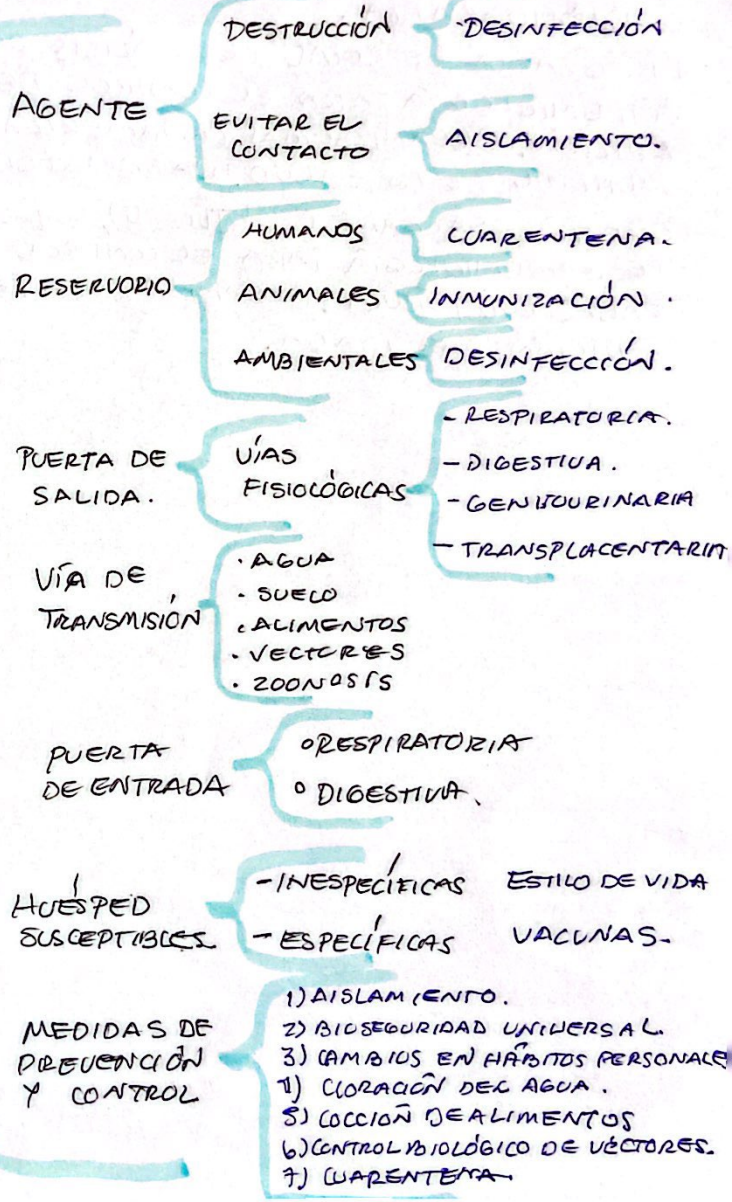 DESTRUCCIÓN DESINFECCIÓN
AGENTE
EVITAR EL
CONTACTO AISLAMIENTO.
HUMANOS CUARENTENA.
RESERVORIO ANIMALES INMUNIZACIÓN.
AMBIENTALES DESINFECCCIÓN.
PUERTA DE
SALIDA.
VÍAS
FISIOLÓGICAS
- RESPIRATORIA.
- DIGESTIVA.
- GENITOURINARIA
- TRANSPLACENTARIA
VÍA DE
TRANSMISIÓN
· AGUA
· SUELO
· ALIMENTOS
· VECTORES
· ZOONOSIS
PUERTA
DE ENTRADA
° RESPIRATORIA
° DIGESTIVA.
HUÉSPED
SUSCEPTIBLES.
- INESPECÍFICAS ESTILO DE VIDA
- ESPECÍFICAS VACUNAS.
MEDIDAS DE
PREVENCIÓN
Y CONTROL
1) AISLAMIENTO.
2) BIOSEGURIDAD UNIVERSAL.
3) CAMBIOS EN HÁBITOS PERSONALE
4) CLORACIÓN DEL AGUA.
5) COCCIÓN DE ALIMENTOS
6) CONTROL BIOLÓGICO DE VÉCTORES.
7) CUARENTENA.